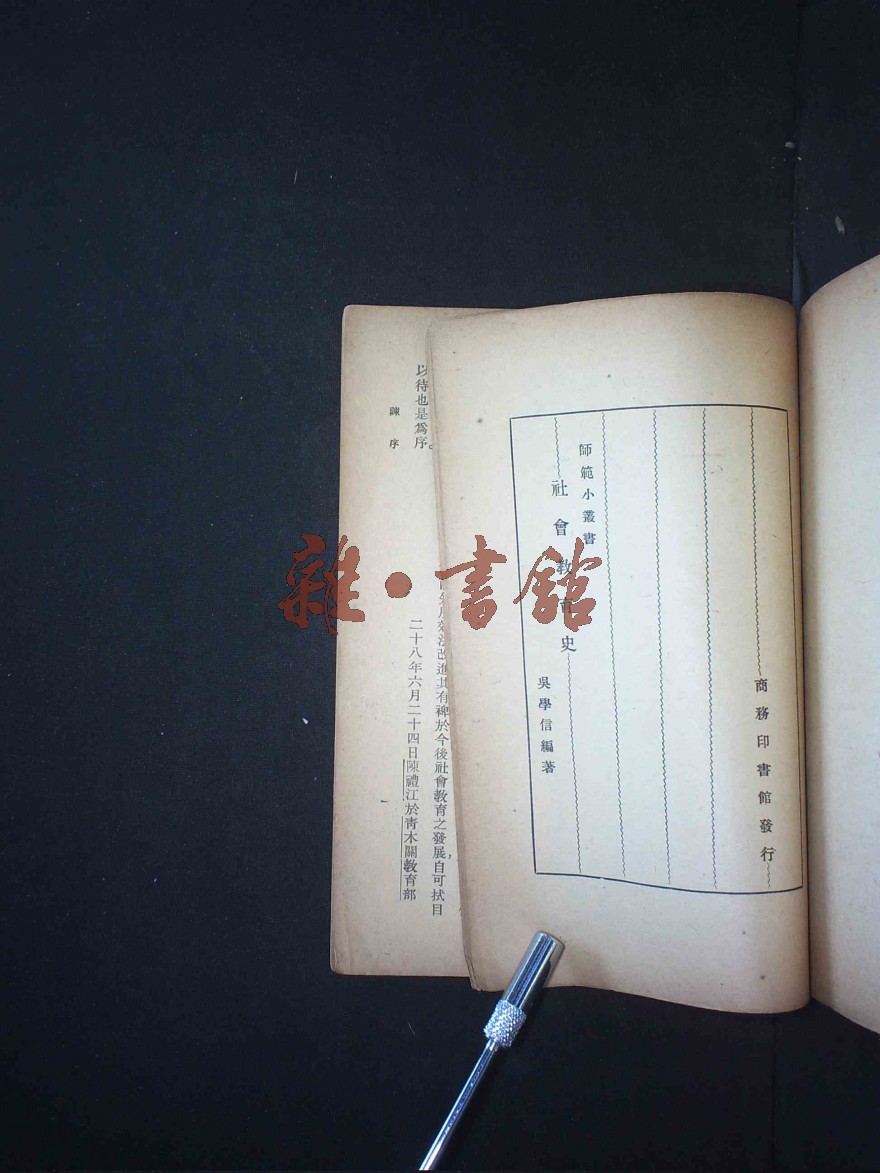 師範小叢書
社會教育史
吳學信編著
商務印書館發行
法改進其有裨於今後社會教育之發展,自可拭目
以待也是爲序。
二十八年六月二十四日陳禮江於青木關教育部
陳序
雜·書館